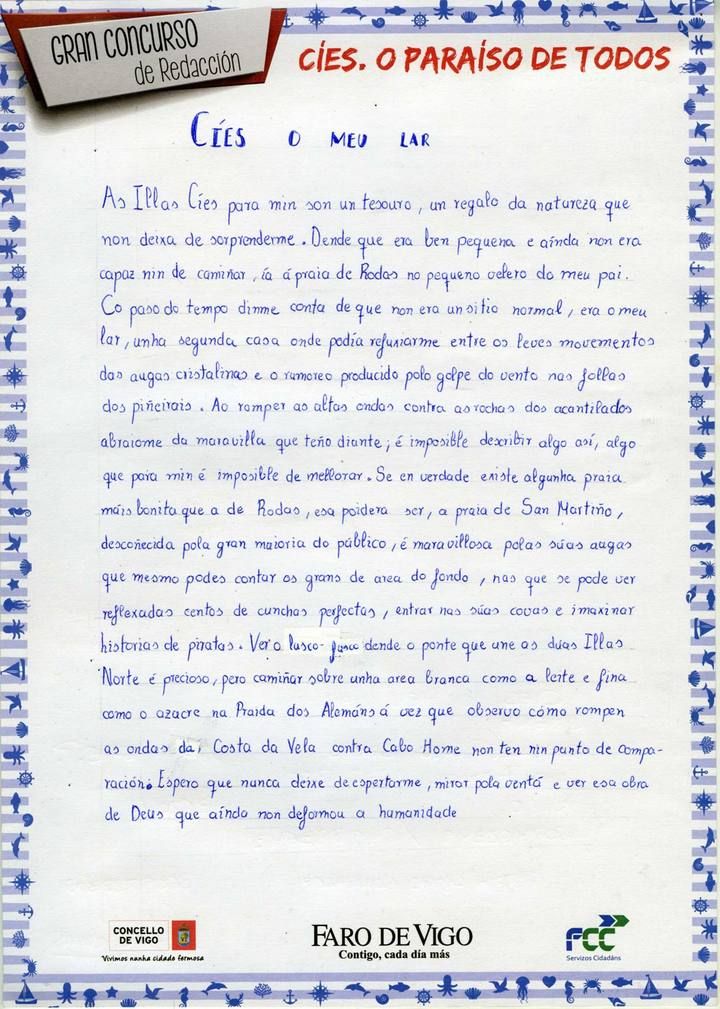 GRAN CONCURSO
de Redacción
CÍES. O PARAÍSO DE TODOS
CÍES O MEU LAR
As Illas Cíes para min son un tesouro, un regalo da natureza que
non deixa de sorprenderme. Dende que era ben pequena e aínda non era
capaz nin de camiñar, ía á praia de Rodas no pequeno velero do meu pai.
Co paso do tempo dinme conta de que non era un sitio normal, era o meu
lar, unha segunda casa onde podía refuxiarme entre os leves movementos
das augas cristalinas e o rumoreo producido polo golpe do vento nas follas
dos piñeirais. Ao romper as altas ondas contra as rochas dos acantilados
abraiome da maravilla que teño diante; é imposible describir algo así, algo
que para min é imposible de mellorar. Se en verdade existe algunha praia
máis bonita que a de Rodas, esa poidera ser, a praia de San Martiño,
descoñecida pola gran maioria do público, é maravillosa polas súas augas
que mesmo podes contar os grans de area do fondo, nas que se pode ver
reflexadas centos de cunchas perfectas, entrar nas súas covas e imaxinar
historias de piratas. Ver o lusco-fusco dende o ponte que une as duas Illas
Norte é precioso, pero camiñar sobre unha area branca como a leite e fina
como o azacre na Praida dos Alemáns á vez que observo cómo rompen
as ondas da Costa da Vela contra Cabo Home non ten nin punto de compa-
ración. Espero que nunca deixe de espertarme, mirar pola ventá e ver esa obra
de Deus que aínda non deformou a humanidade
CONCELLO
DE VIGO
Vivimos nunha cidade fermosa
FARO DE VIGO
Contigo, cada día más
FCC
Servizos Cidadáns